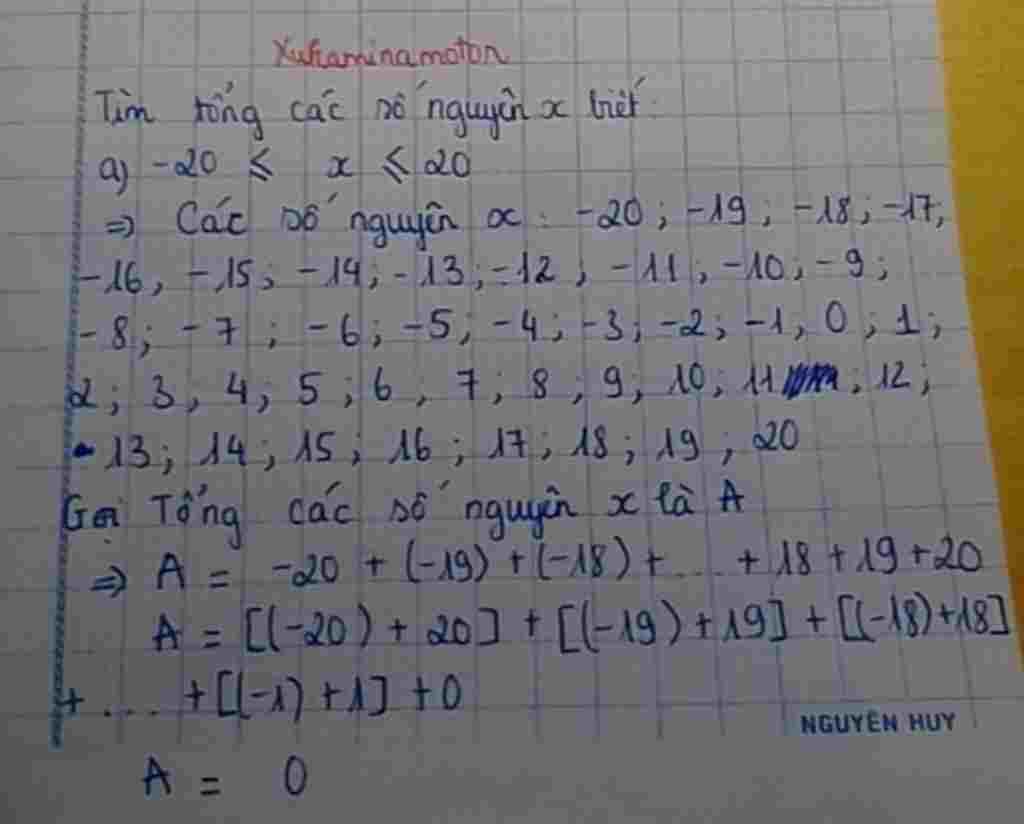 Xukaminamoton
Tìm tổng các số nguyên x biết:
a) -20 ≤ x ≤ 20
=> Các số nguyên x : -20 ; -19 ; -18 ; -17;
-16, -15; -14; -13; -12 ; -11 ; -10, -9;
-8; -7 ; -6; -5; -4; -3; -2; -1, 0 ; 1;
2; 3, 4; 5 ; 6 , 7; 8 , 9; 10; 11 ; 12;
13; 14; 15; 16; 17; 18; 19 ; 20
Gọi Tổng các số nguyên x là A
=> A = -20 + (-19) + (-18) + ... + 18 + 19 + 20
A = [(-20) + 20] + [(-19) + 19] + [(-18) + 18]
+ .... + [(-1) + 1] + 0
NGUYÊN HUY
A = 0